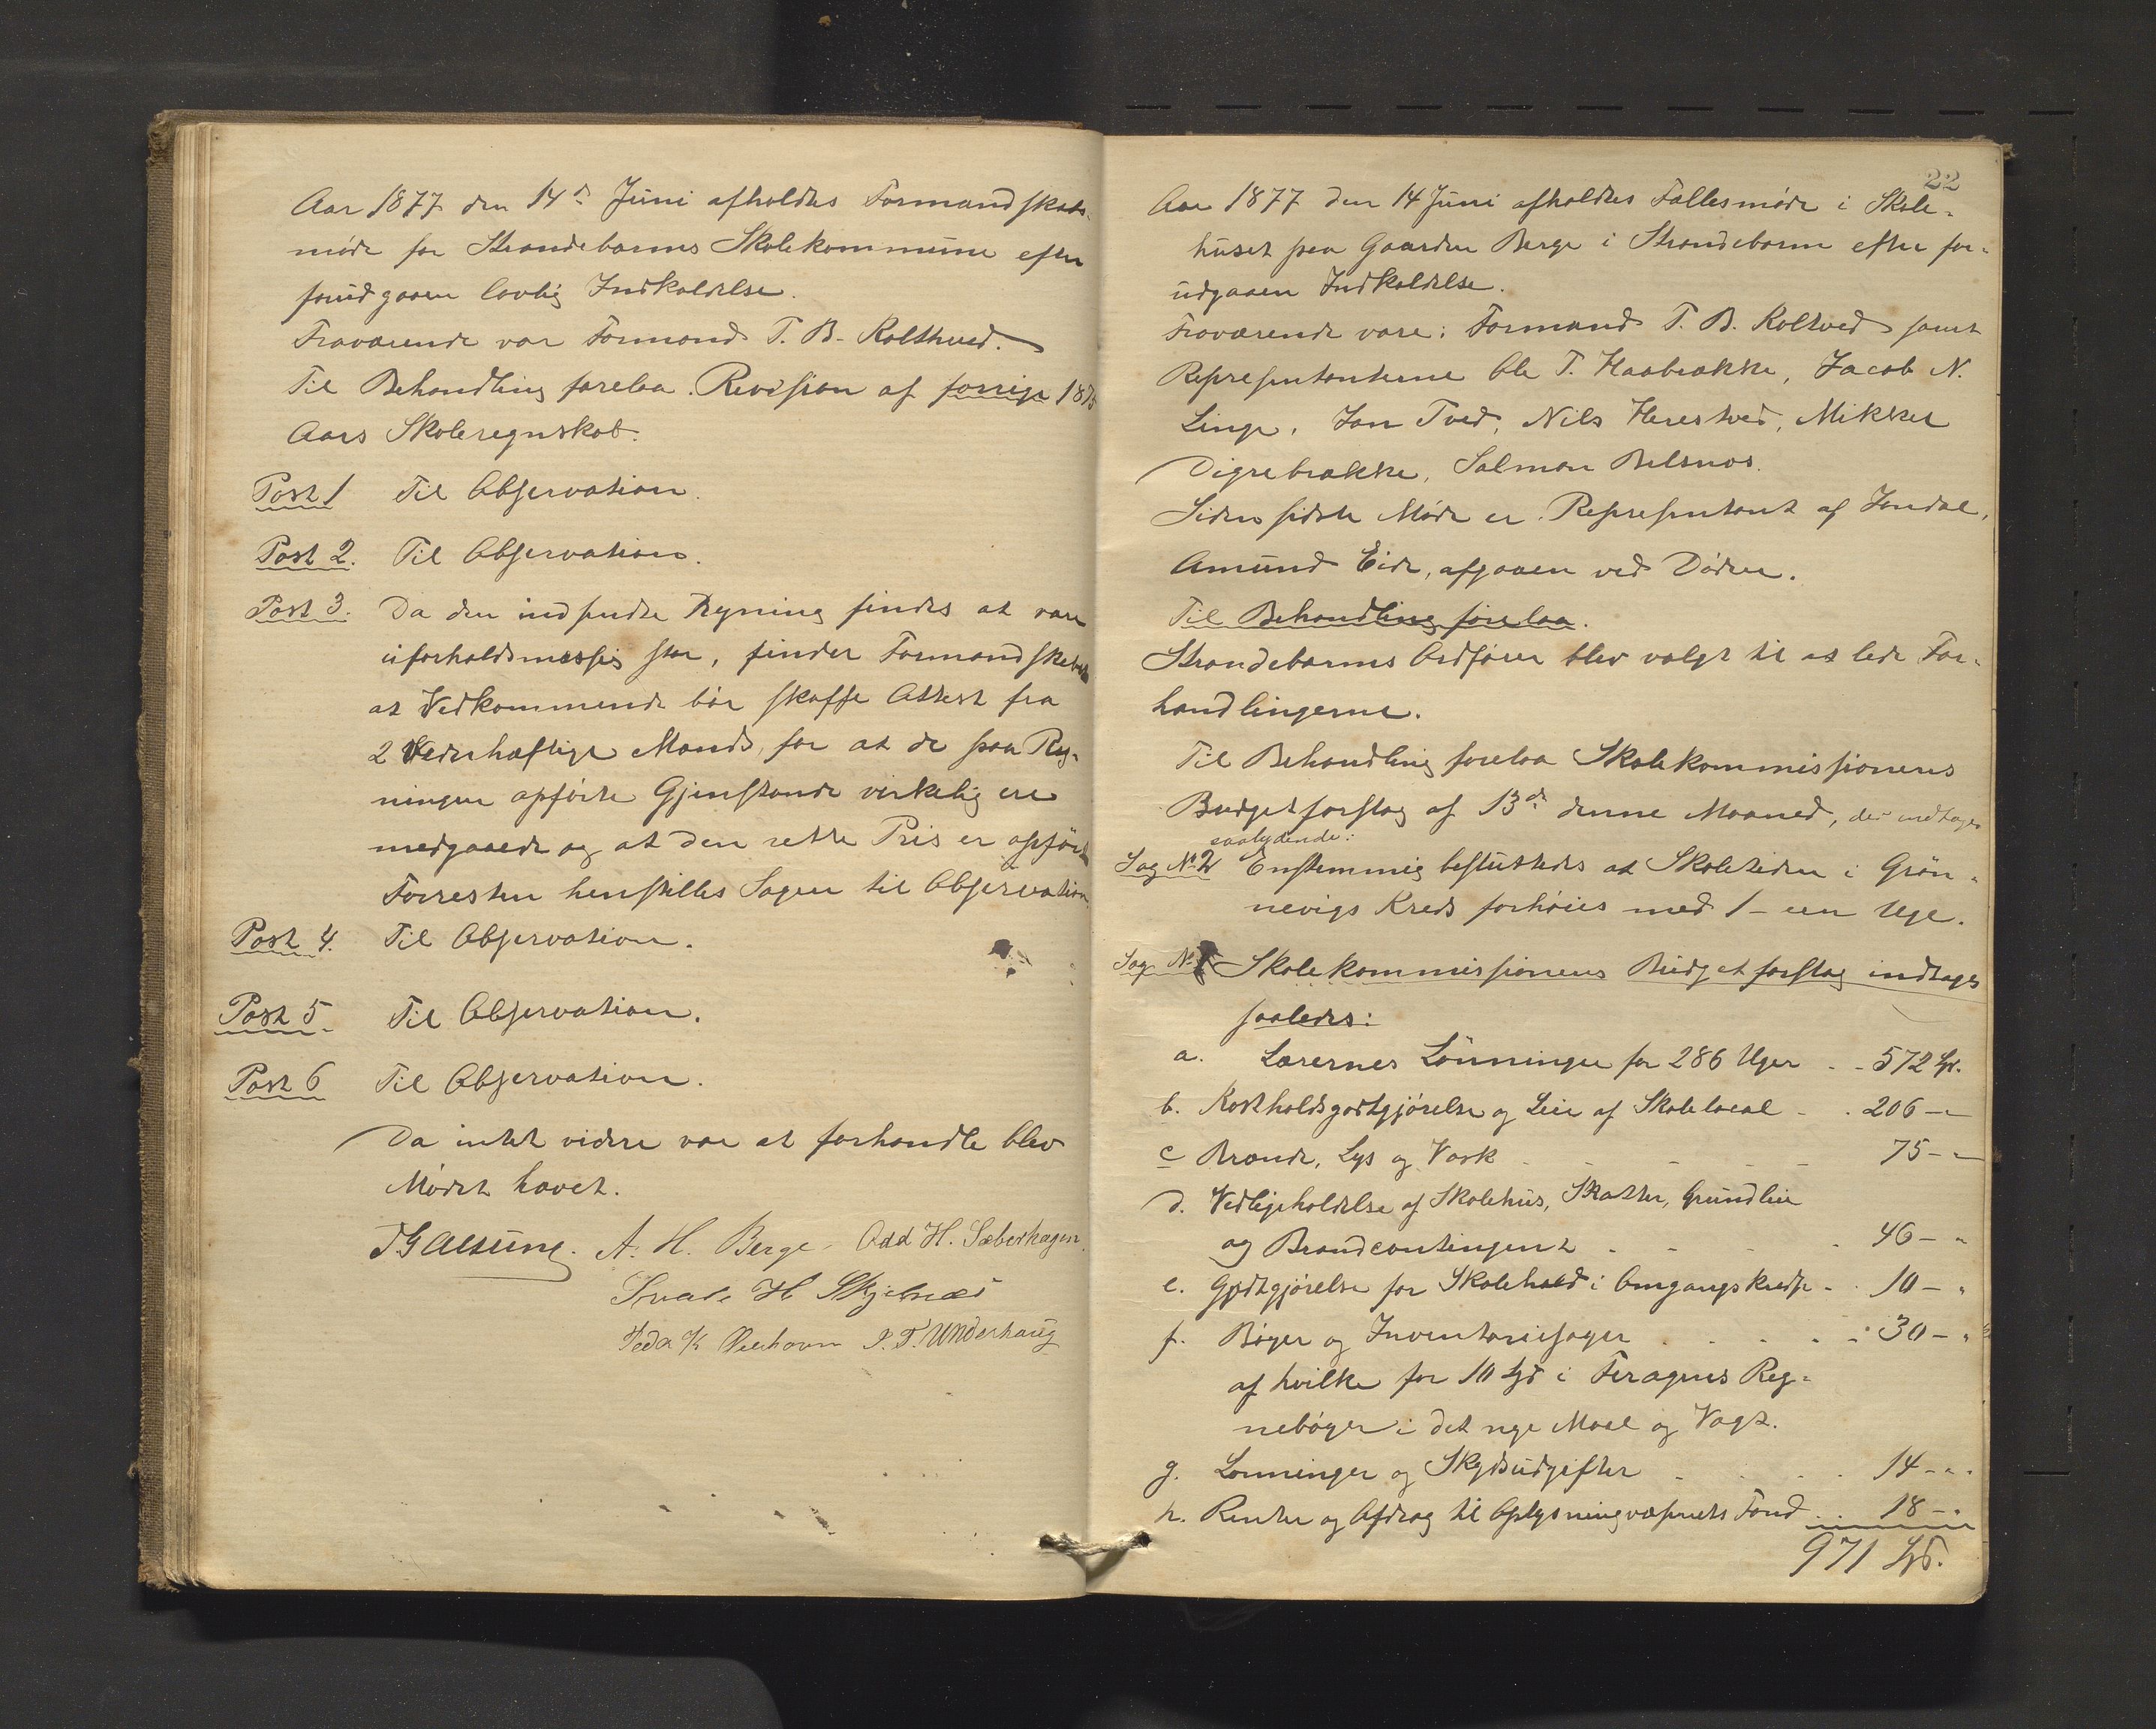 Aar 1877 den 14d Juni afholdtes Formandskabs-
møde for Strandebarms Skolekommune efter
forudgaaen lovlig Indkaldelse.
Fraværende var Formand T. B. Kolthved.
Til Behandling forelaa Revision af forrige 1875
Aars Skoleregnskab.
Post 1 Til Observation.
Post 2. Til Observation.
Post 3. Da den indsendte Regning findes at være
uforholdsmæssig stor, finder Formandskabet
at Vedkommende bør skaffe Attest fra
2 Vederhæftige Mænd, for at de paa Reg-
ningen opførte Gjenstande virkelig ere
medgaaede og at den rette Pris er opført
Forresten henstilles Sagen til Observation.
Post 4. Til Observation.
Post 5 Til Observation.
Post 6 Til Observation.
Da intet videre var at forhandle blev
Mødet hævet.
A. H. Berge Odd H. Sæberhagen
H Skjelnæs
Peder K J. T. Underhaug
22
Aar 1877 den 14 Juni afholdtes Fællesmøde i Skole-
huset paa Gaarden Berge i Strandebarm efter for-
udgaaen Indkaldelse.
Fraværende vare: Formand T. B. Koltved samt
Repræsentanterne Ole T. Haabrække, Jacob N.
Linge, Jon Tved, Nils Herestved, Mikkel
Digrebrække, Salmon Belsnæs.
Siden sidste Møde er Repræsentant af Jondal,
Amund Eide, afgaaen ved Døden.
Til Behandling forelaa.
Strandebarms Ordfører blev valgt til at lede For-
handlingerne.
Til Behandling forelaa Skolekommissionens
Budgetforslag af 13de denne Maaned, der indtages
saalydende:
Sag No 2 Enstemmig besluttedes at Skoletiden i Grøn-
nevigs Kreds forhøies med 1 - een Uge.
Sag No 1 Skolekommissionens Budgetforslag indtages
saaledes:
a. Lærernes Lønninger for 286 Uger - - 572 Spd.
b. Kostholdsgodtgjørelse og Leie af Skolelocal - - 206 - "
c Brænde, Lys og Vask - - - - - 75 - "
d. Vedligeholdelse af Skolehus, Skatter, Grundleie
og Brandcontingent - - - - 46 - "
e. Godtgjørelse for Skolehold i Omgangskredse - - 10 - "
f. Bøger og Inventariesager - - - - 30 - "
af hvilke for 10 Spd i Feragens Reg-
nebøger i det nye Maal og Vægt.
g. Lønninger og Skydsudgifter - - - - 14 - "
h. Renter og Afdrag til Oplysningvæsenets Fond - - 18 - "
971 Spd.